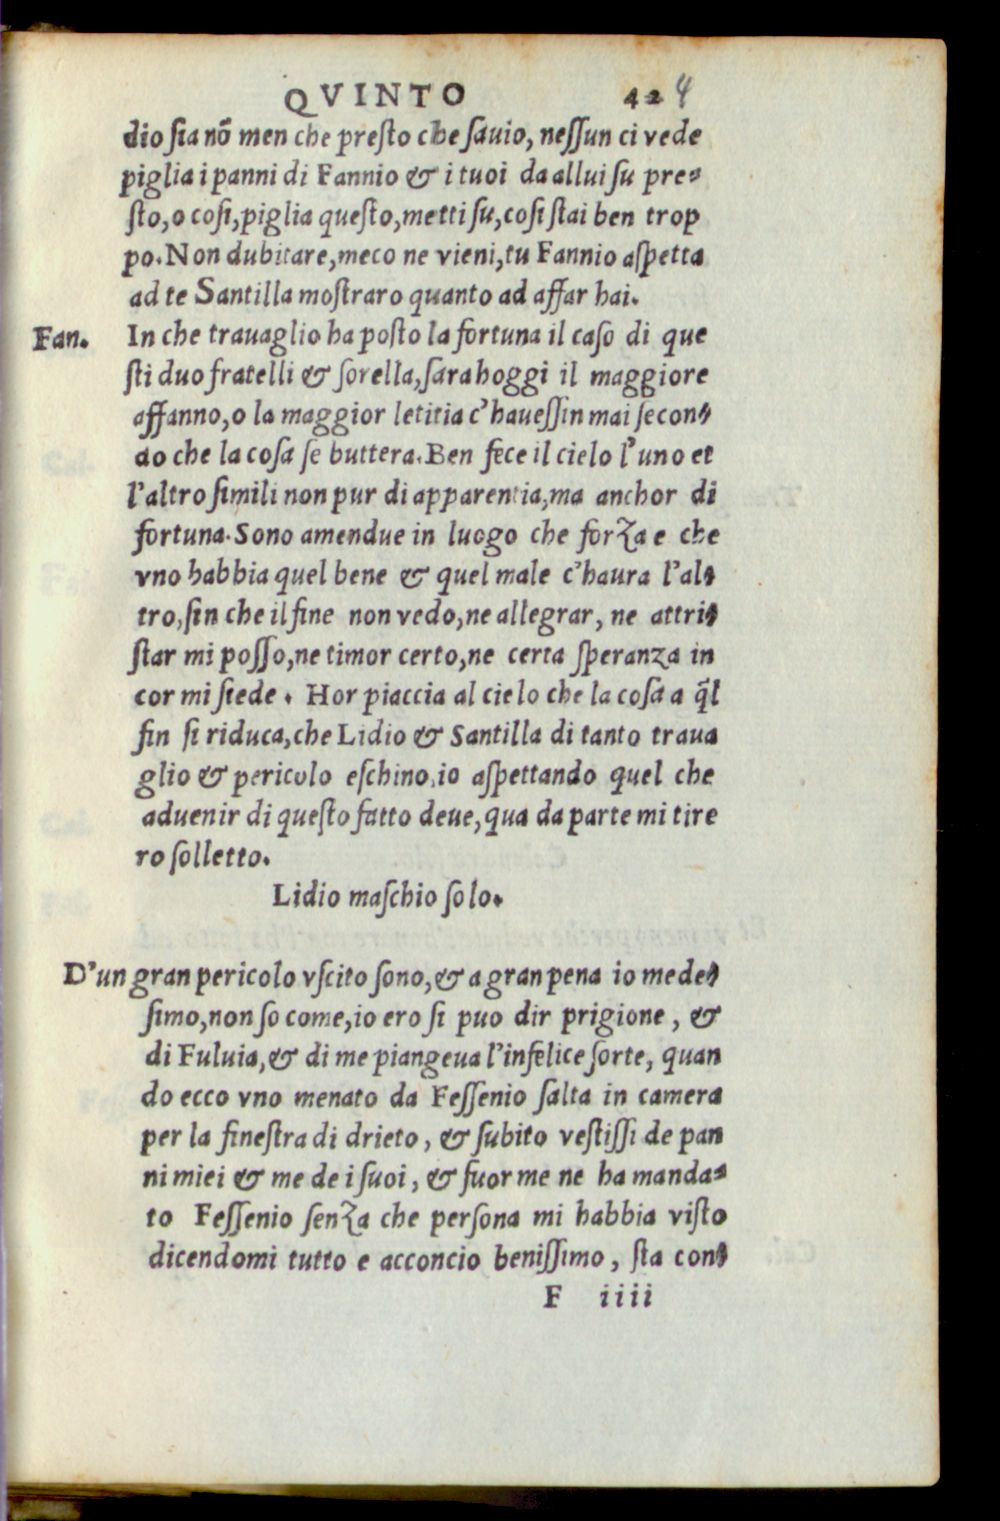 QVINTO 42 4
dio sia nõ men che presto che sauio, nessun ci vede
piglia i panni di Fannio & i tuoi da allui su pre-
sto, o cosi, piglia questo, metti su, cosi stai ben trop
po. Non dubitare, meco ne vieni, tu Fannio aspetta
ad te Santilla mostraro quanto ad affar hai.
Fan. In che trauaglio ha posto la fortuna il caso di que
sti duo fratelli & sorella, sara hoggi il maggiore
affanno, o la maggior letitia c'hauessin mai secon-
do che la cosa se buttera. Ben fece il cielo l'uno et
l'altro simili non pur di apparentia, ma anchor di
fortuna. Sono amendue in luogo che forza e che
vno habbia quel bene & quel male c'haura l'al-
tro, sin che il fine non vedo, ne allegrar, ne attri-
star mi posso, ne timor certo, ne certa speranza in
cor mi siede. Hor piaccia al cielo che la cosa a q̃l
fin si riduca, che Lidio & Santilla di tanto traua
glio & pericolo eschino, io aspettando quel che
aduenir di questo fatto deue, qua da parte mi tire
ro solletto.
Lidio maschio solo.
D'un gran pericolo vscito sono, & a gran pena io mede-
simo, non so come, io ero si puo dir prigione, &
di Fuluia, & di me piangeua l'infelice sorte, quan
do ecco vno menato da Fessenio salta in camera
per la finestra di drieto, & subito vestissi de pan
ni miei & me de i suoi, & fuor me ne ha manda-
to Fessenio senza che persona mi habbia visto
dicendomi tutto e acconcio benissimo, sta con-
F iiii